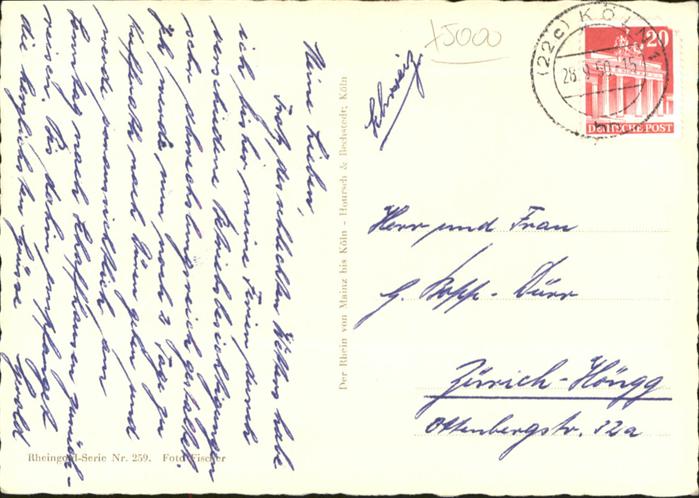 Meine Lieben,
Trotz des schlechten Wetters habe
ich bisher meine Ferien durch
verschiedene Betriebsbesichtigungen
schon abwechslungsreich gestaltet.
Ich werde nun noch 2 Tage zu
nach Düren gehen und
werde voraussichtlich am
Sonntag nach Schaffhausen zurück-
reisen. Bis dahin empfanget
die herzlichsten Grüsse
Rheingold-Serie Nr. 259. Foto Fischer
Der Rhein von Mainz bis Köln - Hoursch & Bechstedt, Köln
+5000
Schweiz
(22c) KÖLN 1
28.9.50.-15
20
DEUTSCHE POST
Herr und Frau
G. Bopp-Dürr
Zürich-Höngg
Ottenbergstr. 12a